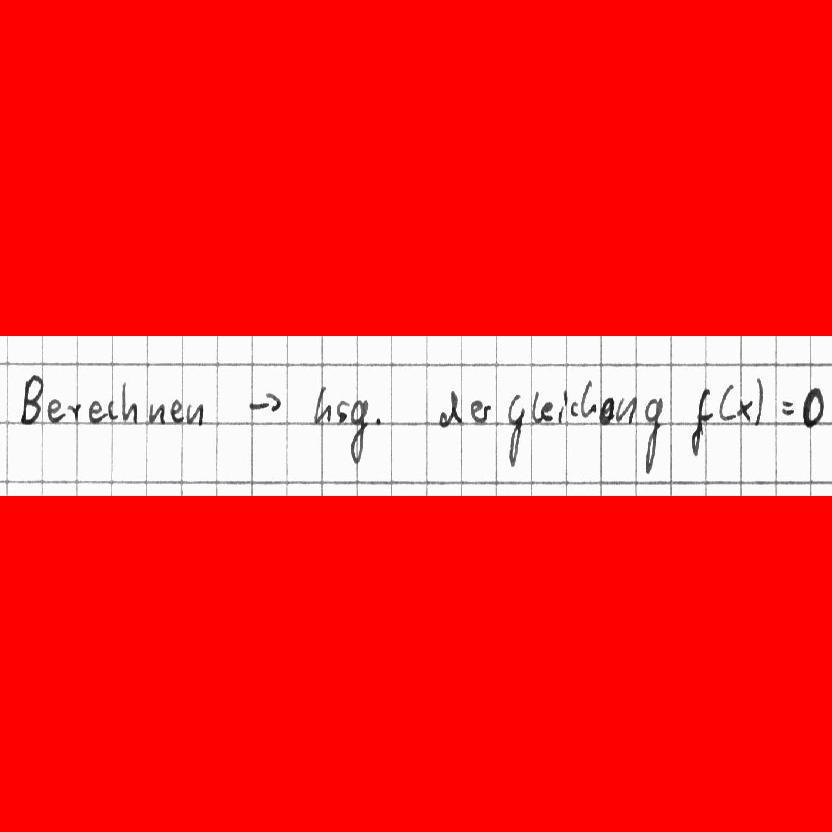 Berechnen → Lsg. der gleichung f(x) = 0